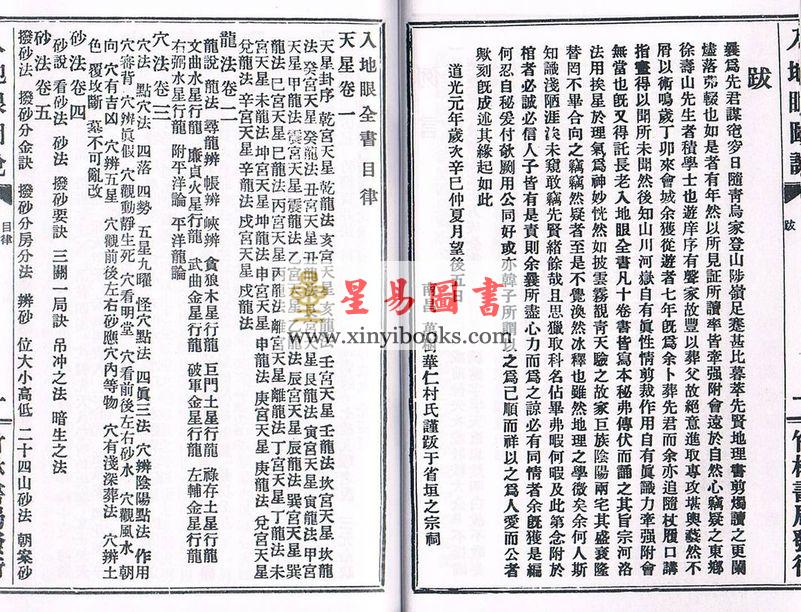 跋
曩爲先君謀窀穸日隨靑烏家登山陟嶺足蹇甚比暮萃先賢地理書剪燭讀之更闌
燼落弗輟也如是者有年然以所見証所讀率皆牽强附會遠於自然心竊疑之東鄉
徐壽山先生者積學士也遊庠序有聲家故豐以葬父故絕意進取專攻堪輿藝然不
屑以術鳴歲丁卯來會城余獲從遊者七年旣爲余卜葬先君而余亦追隨杖履口講
指畫得以聞所未聞然後知山川河嶽自有眞性情剪裁作用自有眞識力牽强附會
無當也旣又得託長老入地眼全書凡十卷書皆寫本秘弗傳伏而誦之其旨宗河洛
法用挨星於理氣爲神妙恍然如披雲霧覩靑天驗之故家巨族陰陽兩宅其盛衰隆
替罔不畢合向之竊竊然疑者至是不覺渙然冰釋也雖然地理之學微矣余何人斯
知識淺陋涯涘未窺敢竊先賢緒餘哉且思獵取科名佔畢弗暇何暇及此第念附於
棺者必誠必信人子皆有是責則余曩所盡心力而爲之諒必有同情者余旣獲是編
何忍自秘爰付劂用公同好或亦韓子所謂以之爲己順而祥以之爲人愛而公者
歟刻旣成述其緣起如此
道光元年歲次辛巳仲夏月望後五日
南昌 萬樹華仁村氏謹跋于省垣之宗祠
跋
入地眼全書目律
天星卷一
天星卦序 乾宮天星 乾龍法 亥宮天星 亥龍法 壬宮天星 壬龍法 坎宮天星 坎龍
法 癸宮天星 癸龍法 丑宮天星 丑龍法 艮宮天星 艮龍法 寅宮天星 寅龍法 甲宮
天星 甲龍法 震宮天星 震龍法 乙宮天星 乙龍法 辰宮天星 辰龍法 巽宮天星 巽
龍法 巳宮天星 巳龍法 丙宮天星 丙龍法 離宮天星 離龍法 丁宮天星 丁龍法 未
宮天星 未龍法 坤宮天星 坤龍法 申宮天星 申龍法 庚宮天星 庚龍法 兌宮天星
兌龍法 辛宮天星 辛龍法 戌宮天星 戌龍法
龍法卷二
龍說 龍法 尋龍辨 帳辨 峽辨 貪狼木星行龍 巨門土星行龍 祿存土星行龍
文曲水星行龍 廉貞火星行龍 武曲金星行龍 破軍金星行龍 左輔金星行龍
右弼水星行龍 附平洋論 平洋龍論
穴法卷三
穴法 點穴法 四落 四勢 五星九曜 怪穴點法 四眞三法 穴辨陰陽點法 作用
穴審背 穴辨眞假 穴觀動靜生死 穴看明堂 穴看前後左右砂水 穴觀風水 朝
向 穴有吉凶 穴辨五星 穴觀前後左右砂應穴內等物 穴有淺深葬法 穴辨土
色 覆坟斷 墓不可亂改
砂法卷四
砂說 看砂法 砂法 撥砂要訣 三關一局訣 吊冲之法 暗生之法
砂法卷五
撥砂法 撥砂分金訣 撥砂分房分法 辨砂 位大小高低 二十四山砂法 朝案砂
目律
一
星易圖書
www.xinyibooks.com